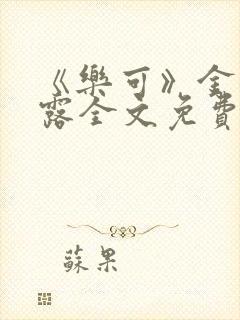 《樂可》金
露全文免費
蘇果